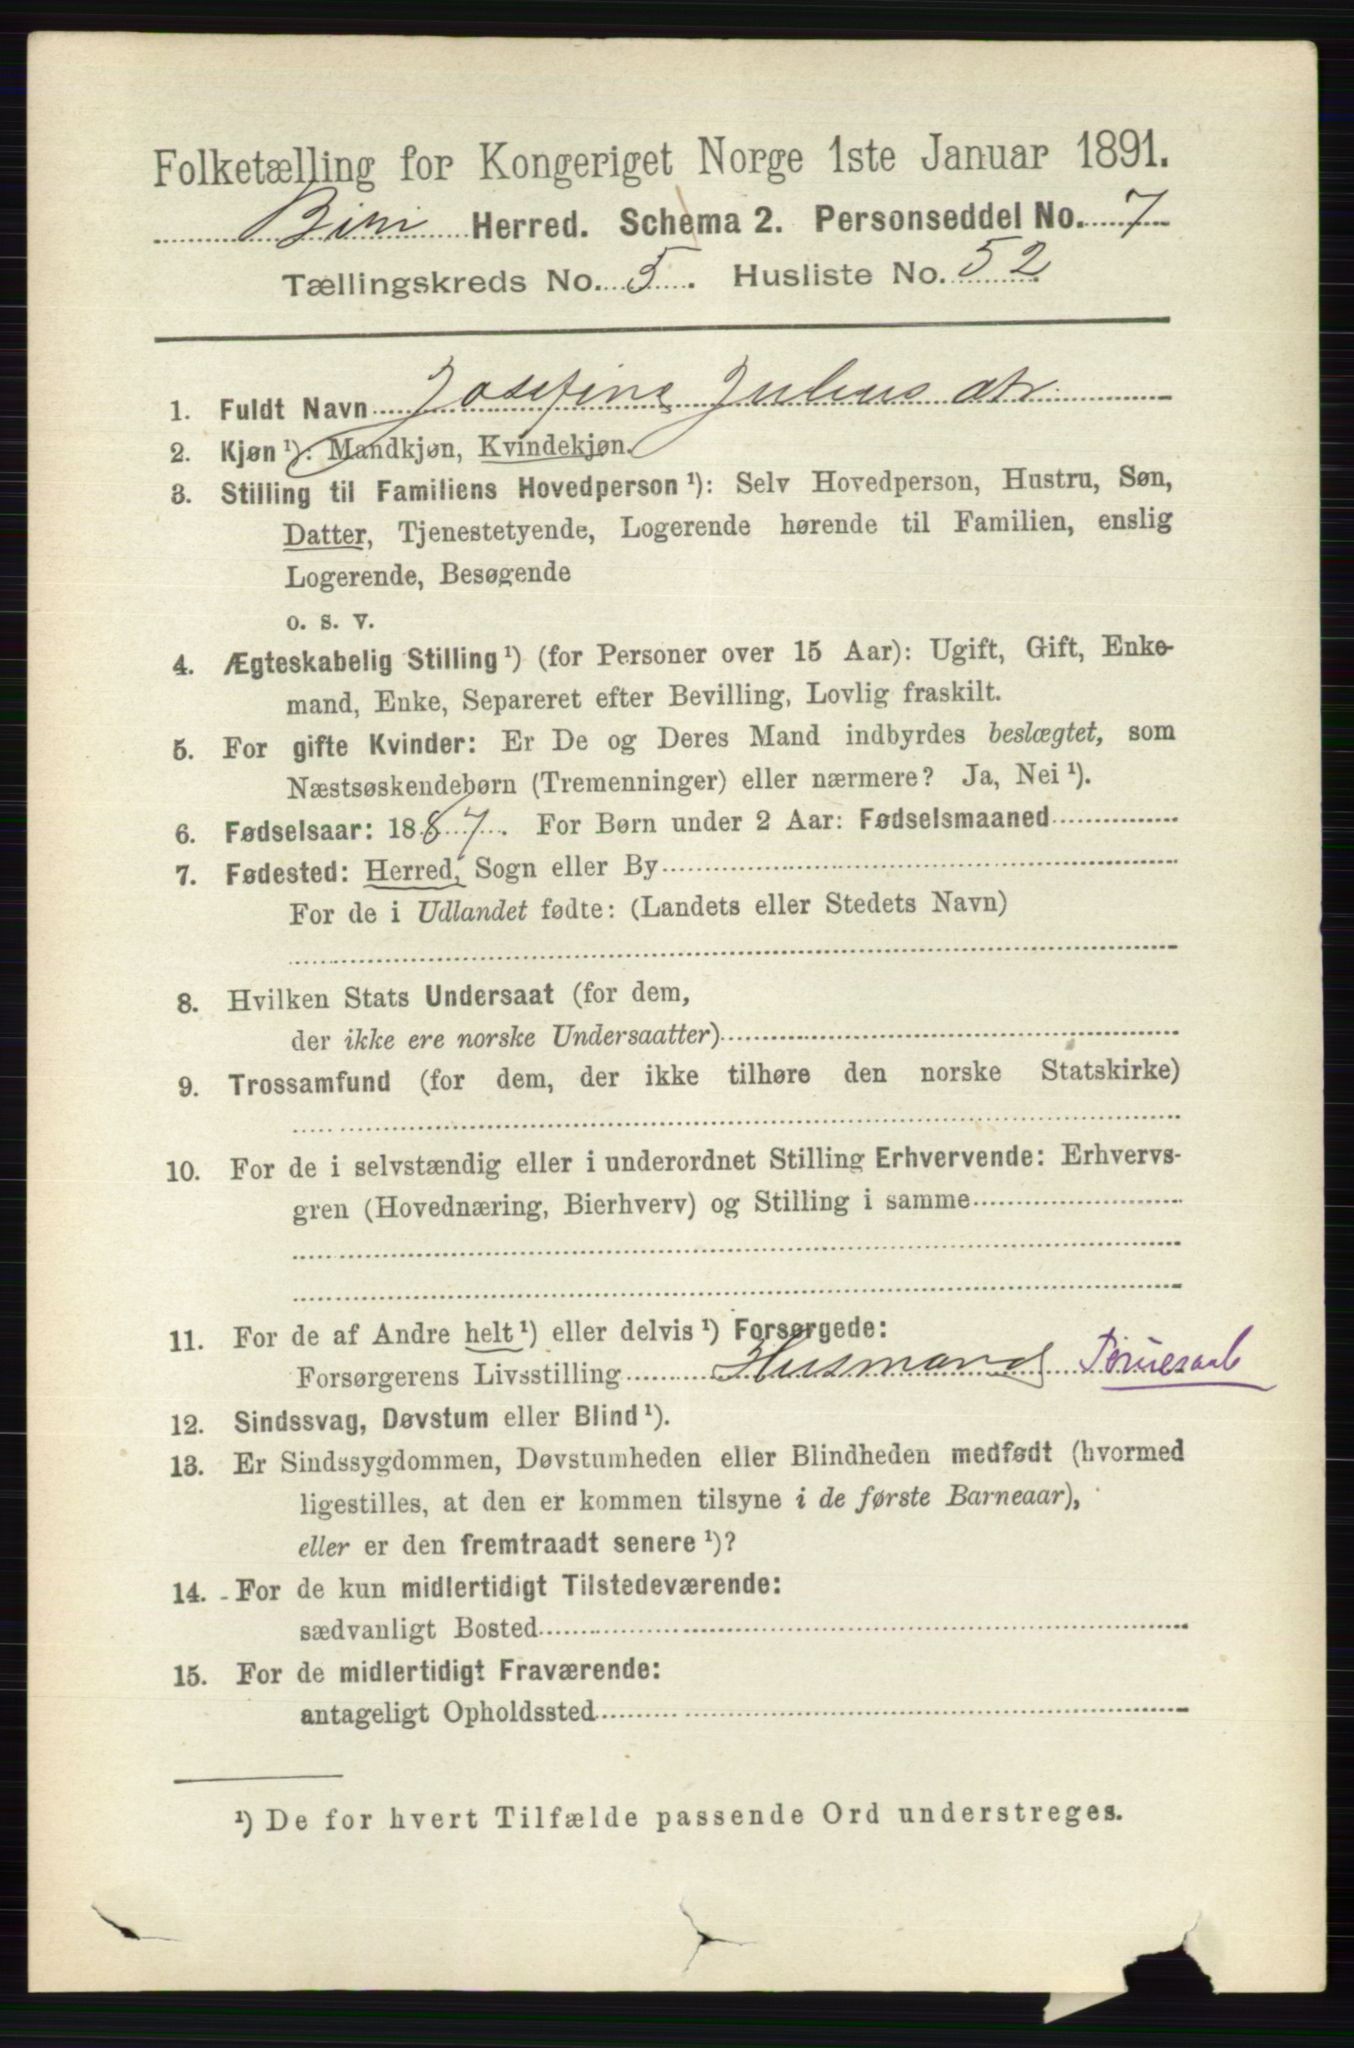 Folketælling for Kongeriget Norge 1ste Januar 1891.
Biri Herred. Schema 2. Personseddel No. 7
Tællingskreds No. 5. Husliste No. 52
1. Fuldt Navn Josefine Julius dtr
2. Kjøn ¹): Mandkjøn, Kvindekjøn.
3. Stilling til Familiens Hovedperson ¹): Selv Hovedperson, Hustru, Søn,
Datter, Tjenestetyende, Logerende hørende til Familien, enslig
Logerende, Besøgende
o. s. v.
4. Ægteskabelig Stilling ¹) (for Personer over 15 Aar): Ugift, Gift, Enke-
mand, Enke, Separeret efter Bevilling, Lovlig fraskilt.
5. For gifte Kvinder: Er De og Deres Mand indbyrdes beslægtet, som
Næstsøskendebørn (Tremenninger) eller nærmere? Ja, Nei ¹).
6. Fødselsaar: 1887. For Børn under 2 Aar: Fødselsmaaned
7. Fødested: Herred, Sogn eller By
For de i Udlandet fødte: (Landets eller Stedets Navn)
8. Hvilken Stats Undersaat (for dem,
der ikke ere norske Undersaatter)
9. Trossamfund (for dem, der ikke tilhøre den norske Statskirke)
10. For de i selvstændig eller i underordnet Stilling Erhvervende: Erhvervs-
gren (Hovednæring, Bierhverv) og Stilling i samme
11. For de af Andre helt ¹) eller delvis ¹) Forsørgede:
Forsørgerens Livsstilling Husmand
12. Sindssvag, Døvstum eller Blind ¹).
13. Er Sindssygdommen, Døvstumheden eller Blindheden medfødt (hvormed
ligestilles, at den er kommen tilsyne i de første Barneaar),
eller er den fremtraadt senere ¹)?
14. For de kun midlertidigt Tilstedeværende:
sædvanligt Bosted
15. For de midlertidigt Fraværende:
antageligt Opholdssted
¹) De for hvert Tilfælde passende Ord understreges.